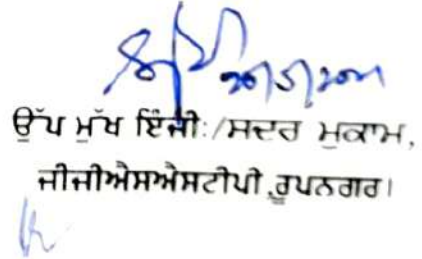 ਉੱਪ ਮੁੱਖ ਇੰਜੀ:/ਸਦਰ ਮੁਕਾਮ,
ਜੀਜੀਐਸਐਸਟੀਪੀ,ਰੂਪਨਗਰ।